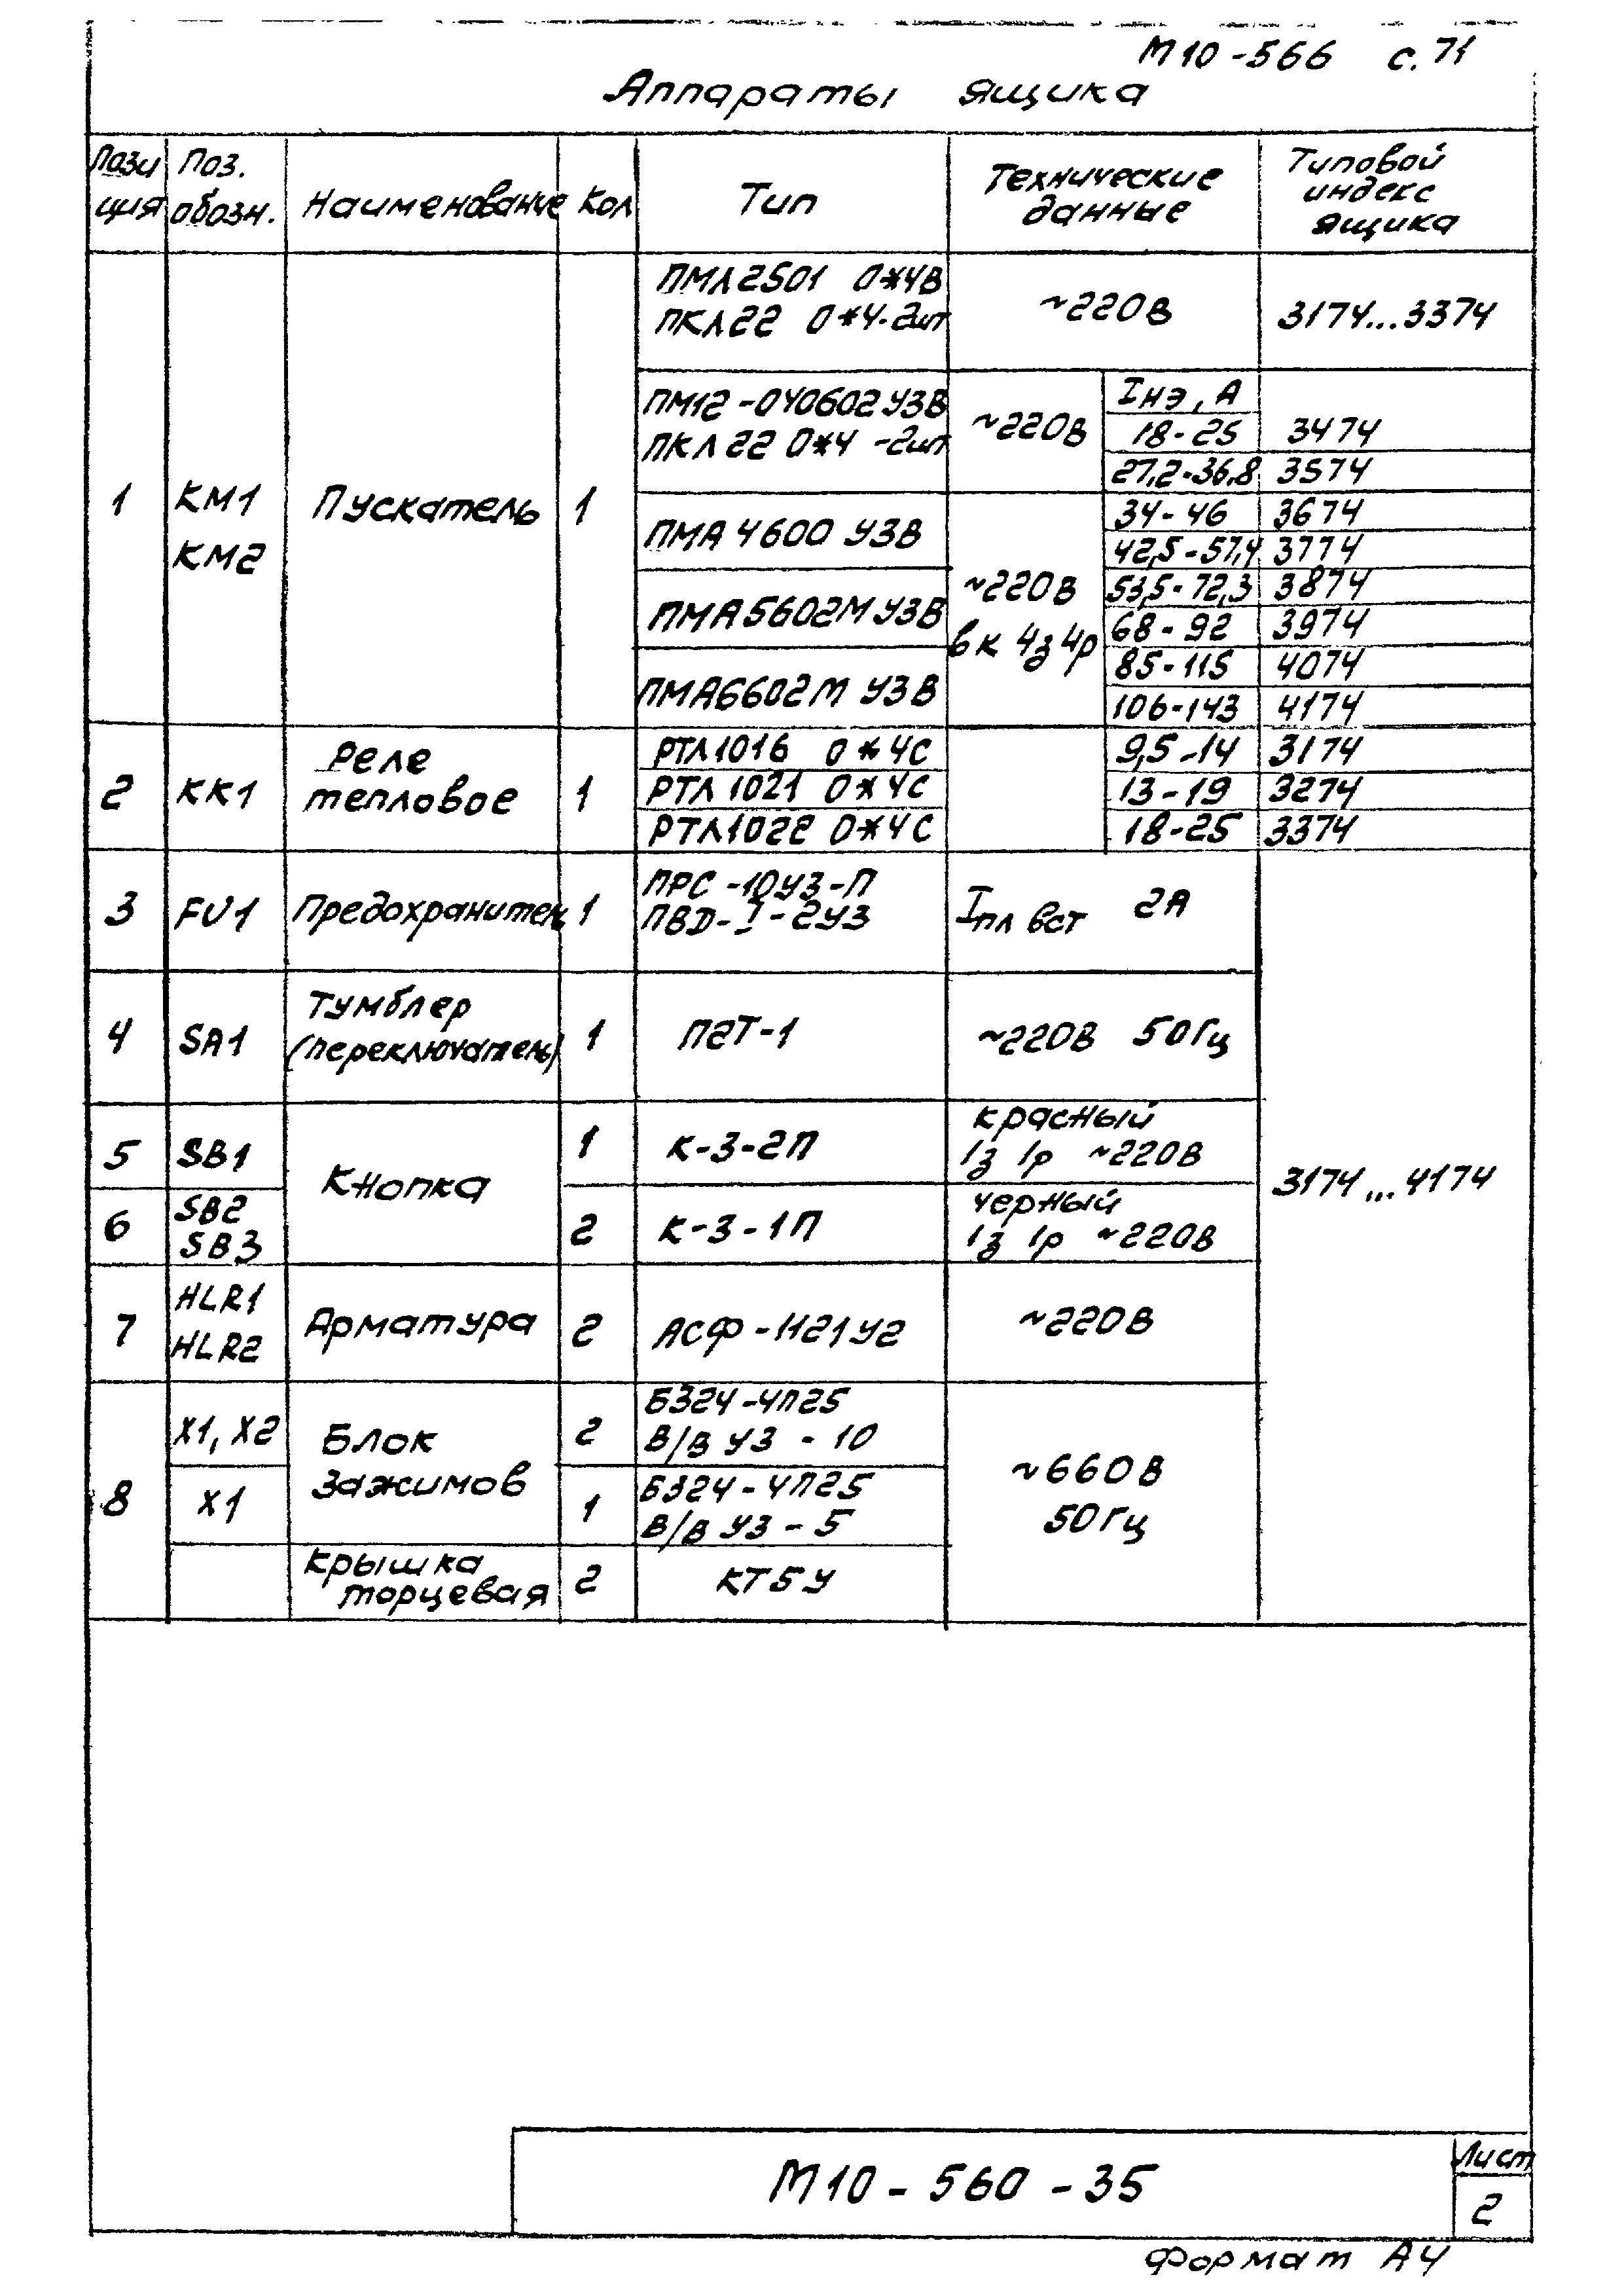 М10-566 с. 71
Аппараты ящика
Пози
ция
Поз.
обозн.
Наименование
Кол
Тип
Технические
данные
Типовой
индекс
ящика
1
КМ1
КМ2
Пускатель
1
ПМЛ2501 0*4В
ПКЛ22 0*4-2шт
~220В
3174...3374
ПМ12-040602У3В
ПКЛ22 0*4 -2шт
~220В
Iнэ, А
18-25 3474
27,2-36,8 3574
ПМА 4600 У3В
34-46 3674
42,5-57,4 3774
ПМА5602М У3В
~220В
вк 4з 4р
53,5-72,3 3874
68-92 3974
ПМА6602М У3В
85-115 4074
106-143 4174
2
КК1
Реле
тепловое
1
РТЛ1016 0*4С 9,5-14 3174
РТЛ1021 0*4С 13-19 3274
РТЛ1022 0*4С 18-25 3374
3
FU1
Предохранитель
1
ПРС-10У3-П
ПВД-I-2У3
Iпл вст 2А
4
SA1
Тумблер
(переключатель)
1
П2Т-1
~220В 50Гц
5
SB1
Кнопка
1
К-3-2П
красный
1з 1р ~220В
3174...4174
6
SB2
SB3
2
К-3-1П
черный
1з 1р ~220В
7
HLR1
HLR2
Арматура
2
АСФ-1121У2
~220В
8
X1, X2
Блок
зажимов
2
Б324-4П25
В/В У3 - 10
~660В
50Гц
X1
1
Б324-4П25
В/В У3 - 5
крышка
торцевая
2
КТ5У
М10-560-35
Лист
2
Формат А4